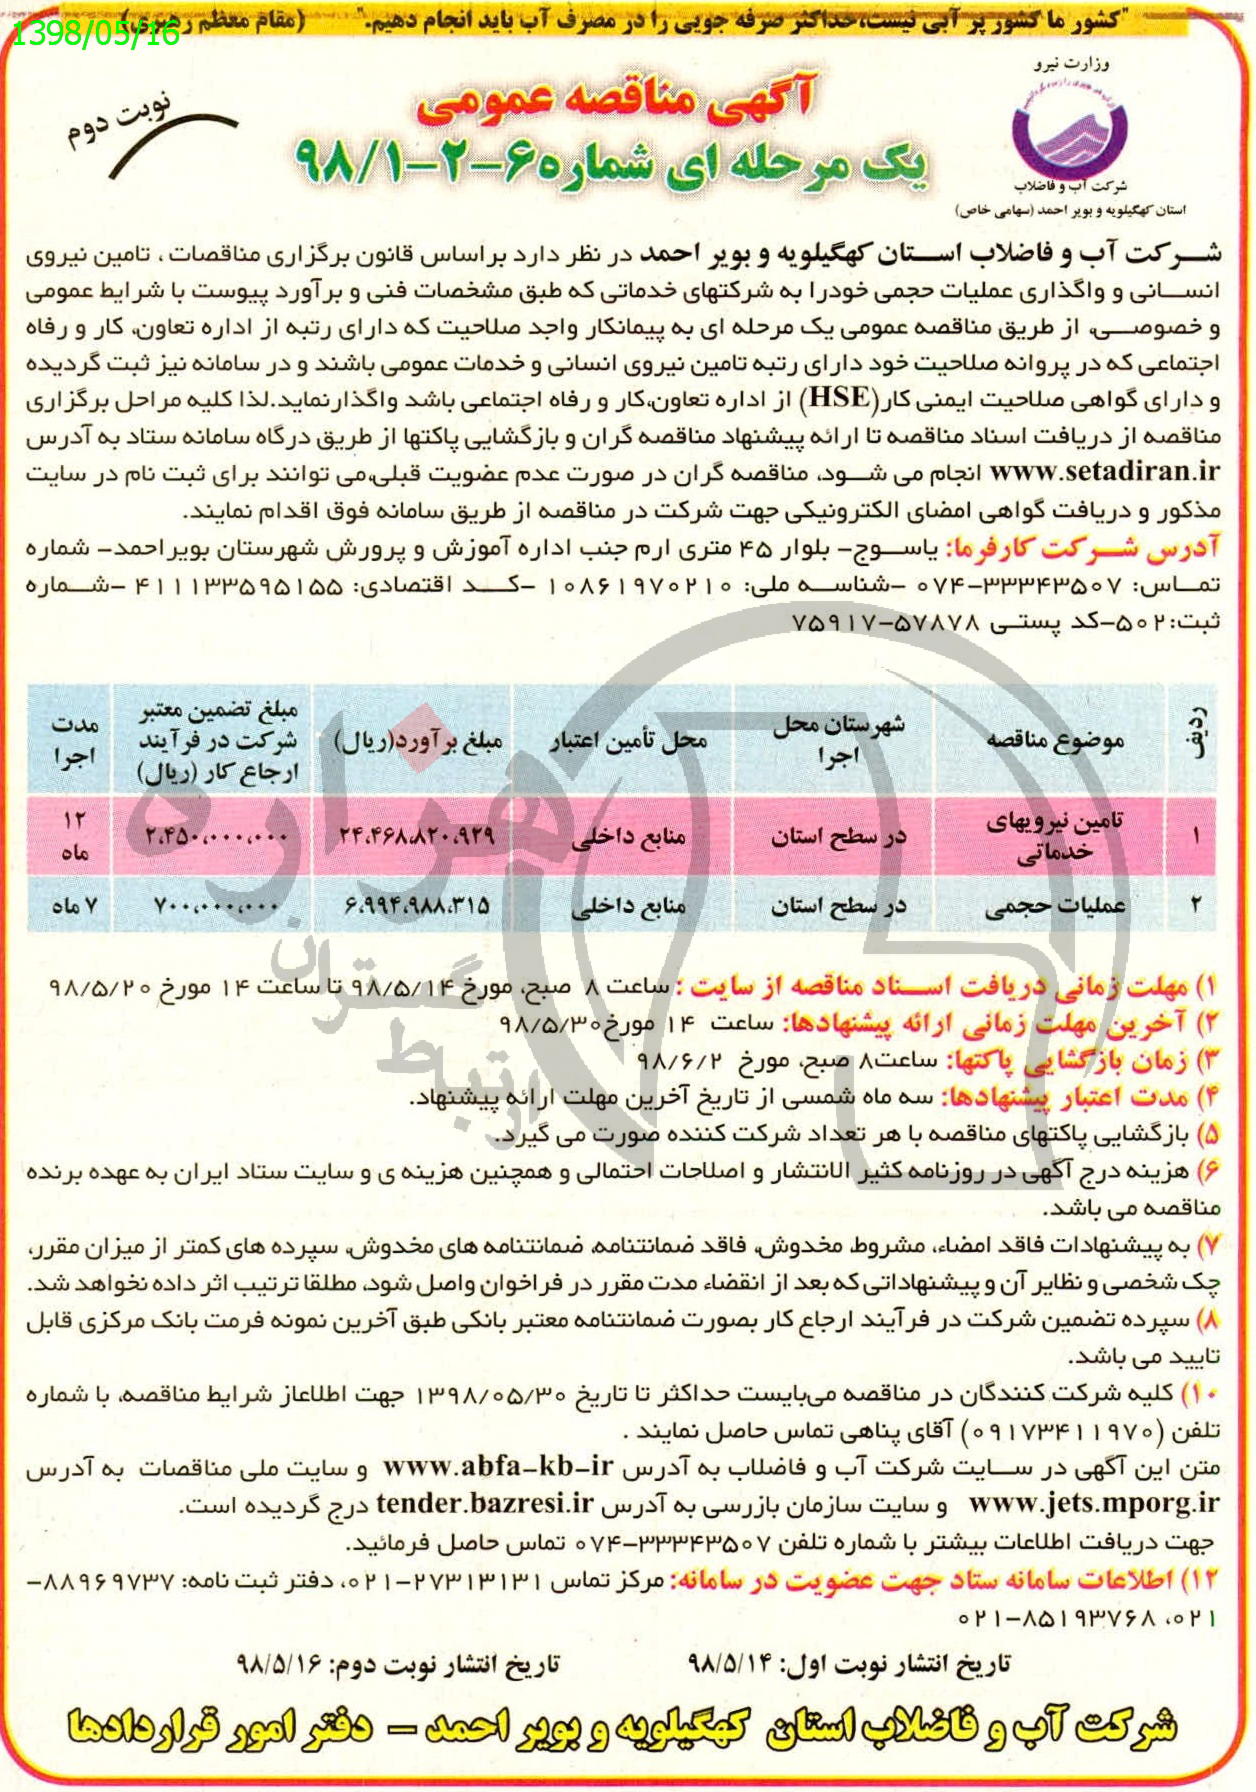 "کشور ما کشور پر آبی نیست،حداکثر صرفه جویی را در مصرف آب باید انجام دهیم." (مقام معظم رهبری)
1398/05/16
وزارت نیرو
شرکت آب و فاضلاب
استان کهگیلویه و بویر احمد (سهامی خاص)
آگهی مناقصه عمومی
یک مرحله ای شماره ۶-۲-۹۸/۱
نوبت دوم
شرکت آب و فاضلاب استان کهگیلویه و بویر احمد در نظر دارد براساس قانون برگزاری مناقصات ، تامین نیروی
انسانی و واگذاری عملیات حجمی خودرا به شرکتهای خدماتی که طبق مشخصات فنی و برآورد پیوست با شرایط عمومی
و خصوصی، از طریق مناقصه عمومی یک مرحله ای به پیمانکار واجد صلاحیت که دارای رتبه از اداره تعاون، کار و رفاه
اجتماعی که در پروانه صلاحیت خود دارای رتبه تامین نیروی انسانی و خدمات عمومی باشند و در سامانه نیز ثبت گردیده
و دارای گواهی صلاحیت ایمنی کار(HSE) از اداره تعاون،کار و رفاه اجتماعی باشد واگذارنماید.لذا کلیه مراحل برگزاری
مناقصه از دریافت اسناد مناقصه تا ارائه پیشنهاد مناقصه گران و بازگشایی پاکتها از طریق درگاه سامانه ستاد به آدرس
www.setadiran.ir انجام می شود، مناقصه گران در صورت عدم عضویت قبلی،می توانند برای ثبت نام در سایت
مذکور و دریافت گواهی امضای الکترونیکی جهت شرکت در مناقصه از طریق سامانه فوق اقدام نمایند.
آدرس شرکت کارفرما: یاسوج- بلوار ۴۵ متری ارم جنب اداره آموزش و پرورش شهرستان بویراحمد- شماره
تماس: ۳۳۳۴۳۵۰۷-۰۷۴ -شناسه ملی: ۱۰۸۶۱۹۷۰۲۱۰ -کد اقتصادی: ۴۱۱۱۳۳۵۹۵۱۵۵ -شماره
ثبت:۵۰۲-کد پستی ۵۷۸۷۸-۷۵۹۱۷
ردیف | موضوع مناقصه | شهرستان محل اجرا | محل تأمین اعتبار | مبلغ برآورد(ریال) | مبلغ تضمین معتبر شرکت در فرآیند ارجاع کار (ریال) | مدت اجرا
۱ | تامین نیرویهای خدماتی | در سطح استان | منابع داخلی | ۲۴،۴۶۸،۸۲۰،۹۲۹ | ۲،۴۵۰،۰۰۰،۰۰۰ | ۱۲ ماه
۲ | عملیات حجمی | در سطح استان | منابع داخلی | ۶،۹۹۴،۹۸۸،۳۱۵ | ۷۰۰،۰۰۰،۰۰۰ | ۷ ماه
هزاره
گستران
ارتباط
۱) مهلت زمانی دریافت اسناد مناقصه از سایت : ساعت ۸ صبح، مورخ ۹۸/۵/۱۴ تا ساعت ۱۴ مورخ ۹۸/۵/۲۰
۲) آخرین مهلت زمانی ارائه پیشنهادها: ساعت ۱۴ مورخ۹۸/۵/۳۰
۳) زمان بازگشایی پاکتها: ساعت۸ صبح، مورخ ۹۸/۶/۲
۴) مدت اعتبار پیشنهادها: سه ماه شمسی از تاریخ آخرین مهلت ارائه پیشنهاد.
۵) بازگشایی پاکتهای مناقصه با هر تعداد شرکت کننده صورت می گیرد.
۶) هزینه درج آگهی در روزنامه کثیر الانتشار و اصلاحات احتمالی و همچنین هزینه ی و سایت ستاد ایران به عهده برنده
مناقصه می باشد.
۷) به پیشنهادات فاقد امضاء، مشروط، مخدوش، فاقد ضمانتنامه، ضمانتنامه های مخدوش، سپرده های کمتر از میزان مقرر،
چک شخصی و نظایر آن و پیشنهاداتی که بعد از انقضاء مدت مقرر در فراخوان واصل شود، مطلقا ترتیب اثر داده نخواهد شد.
۸) سپرده تضمین شرکت در فرآیند ارجاع کار بصورت ضمانتنامه معتبر بانکی طبق آخرین نمونه فرمت بانک مرکزی قابل
تایید می باشد.
۱۰) کلیه شرکت کنندگان در مناقصه می‌بایست حداکثر تا تاریخ ۱۳۹۸/۰۵/۳۰ جهت اطلاعاز شرایط مناقصه، با شماره
تلفن (۰۹۱۷۳۴۱۱۹۷۰) آقای پناهی تماس حاصل نمایند .
متن این آگهی در سایت شرکت آب و فاضلاب به آدرس www.abfa-kb-ir و سایت ملی مناقصات به آدرس
www.jets.mporg.ir و سایت سازمان بازرسی به آدرس tender.bazresi.ir درج گردیده است.
جهت دریافت اطلاعات بیشتر با شماره تلفن ۳۳۳۴۳۵۰۷-۰۷۴ تماس حاصل فرمائید.
۱۲) اطلاعات سامانه ستاد جهت عضویت در سامانه: مرکز تماس ۲۷۳۱۳۱۳۱-۰۲۱، دفتر ثبت نامه: ۸۸۹۶۹۷۳۷-
۰۲۱، ۸۵۱۹۳۷۶۸-۰۲۱
تاریخ انتشار نوبت اول: ۹۸/۵/۱۴ تاریخ انتشار نوبت دوم: ۹۸/۵/۱۶
شرکت آب و فاضلاب استان کهگیلویه و بویر احمد - دفتر امور قراردادها